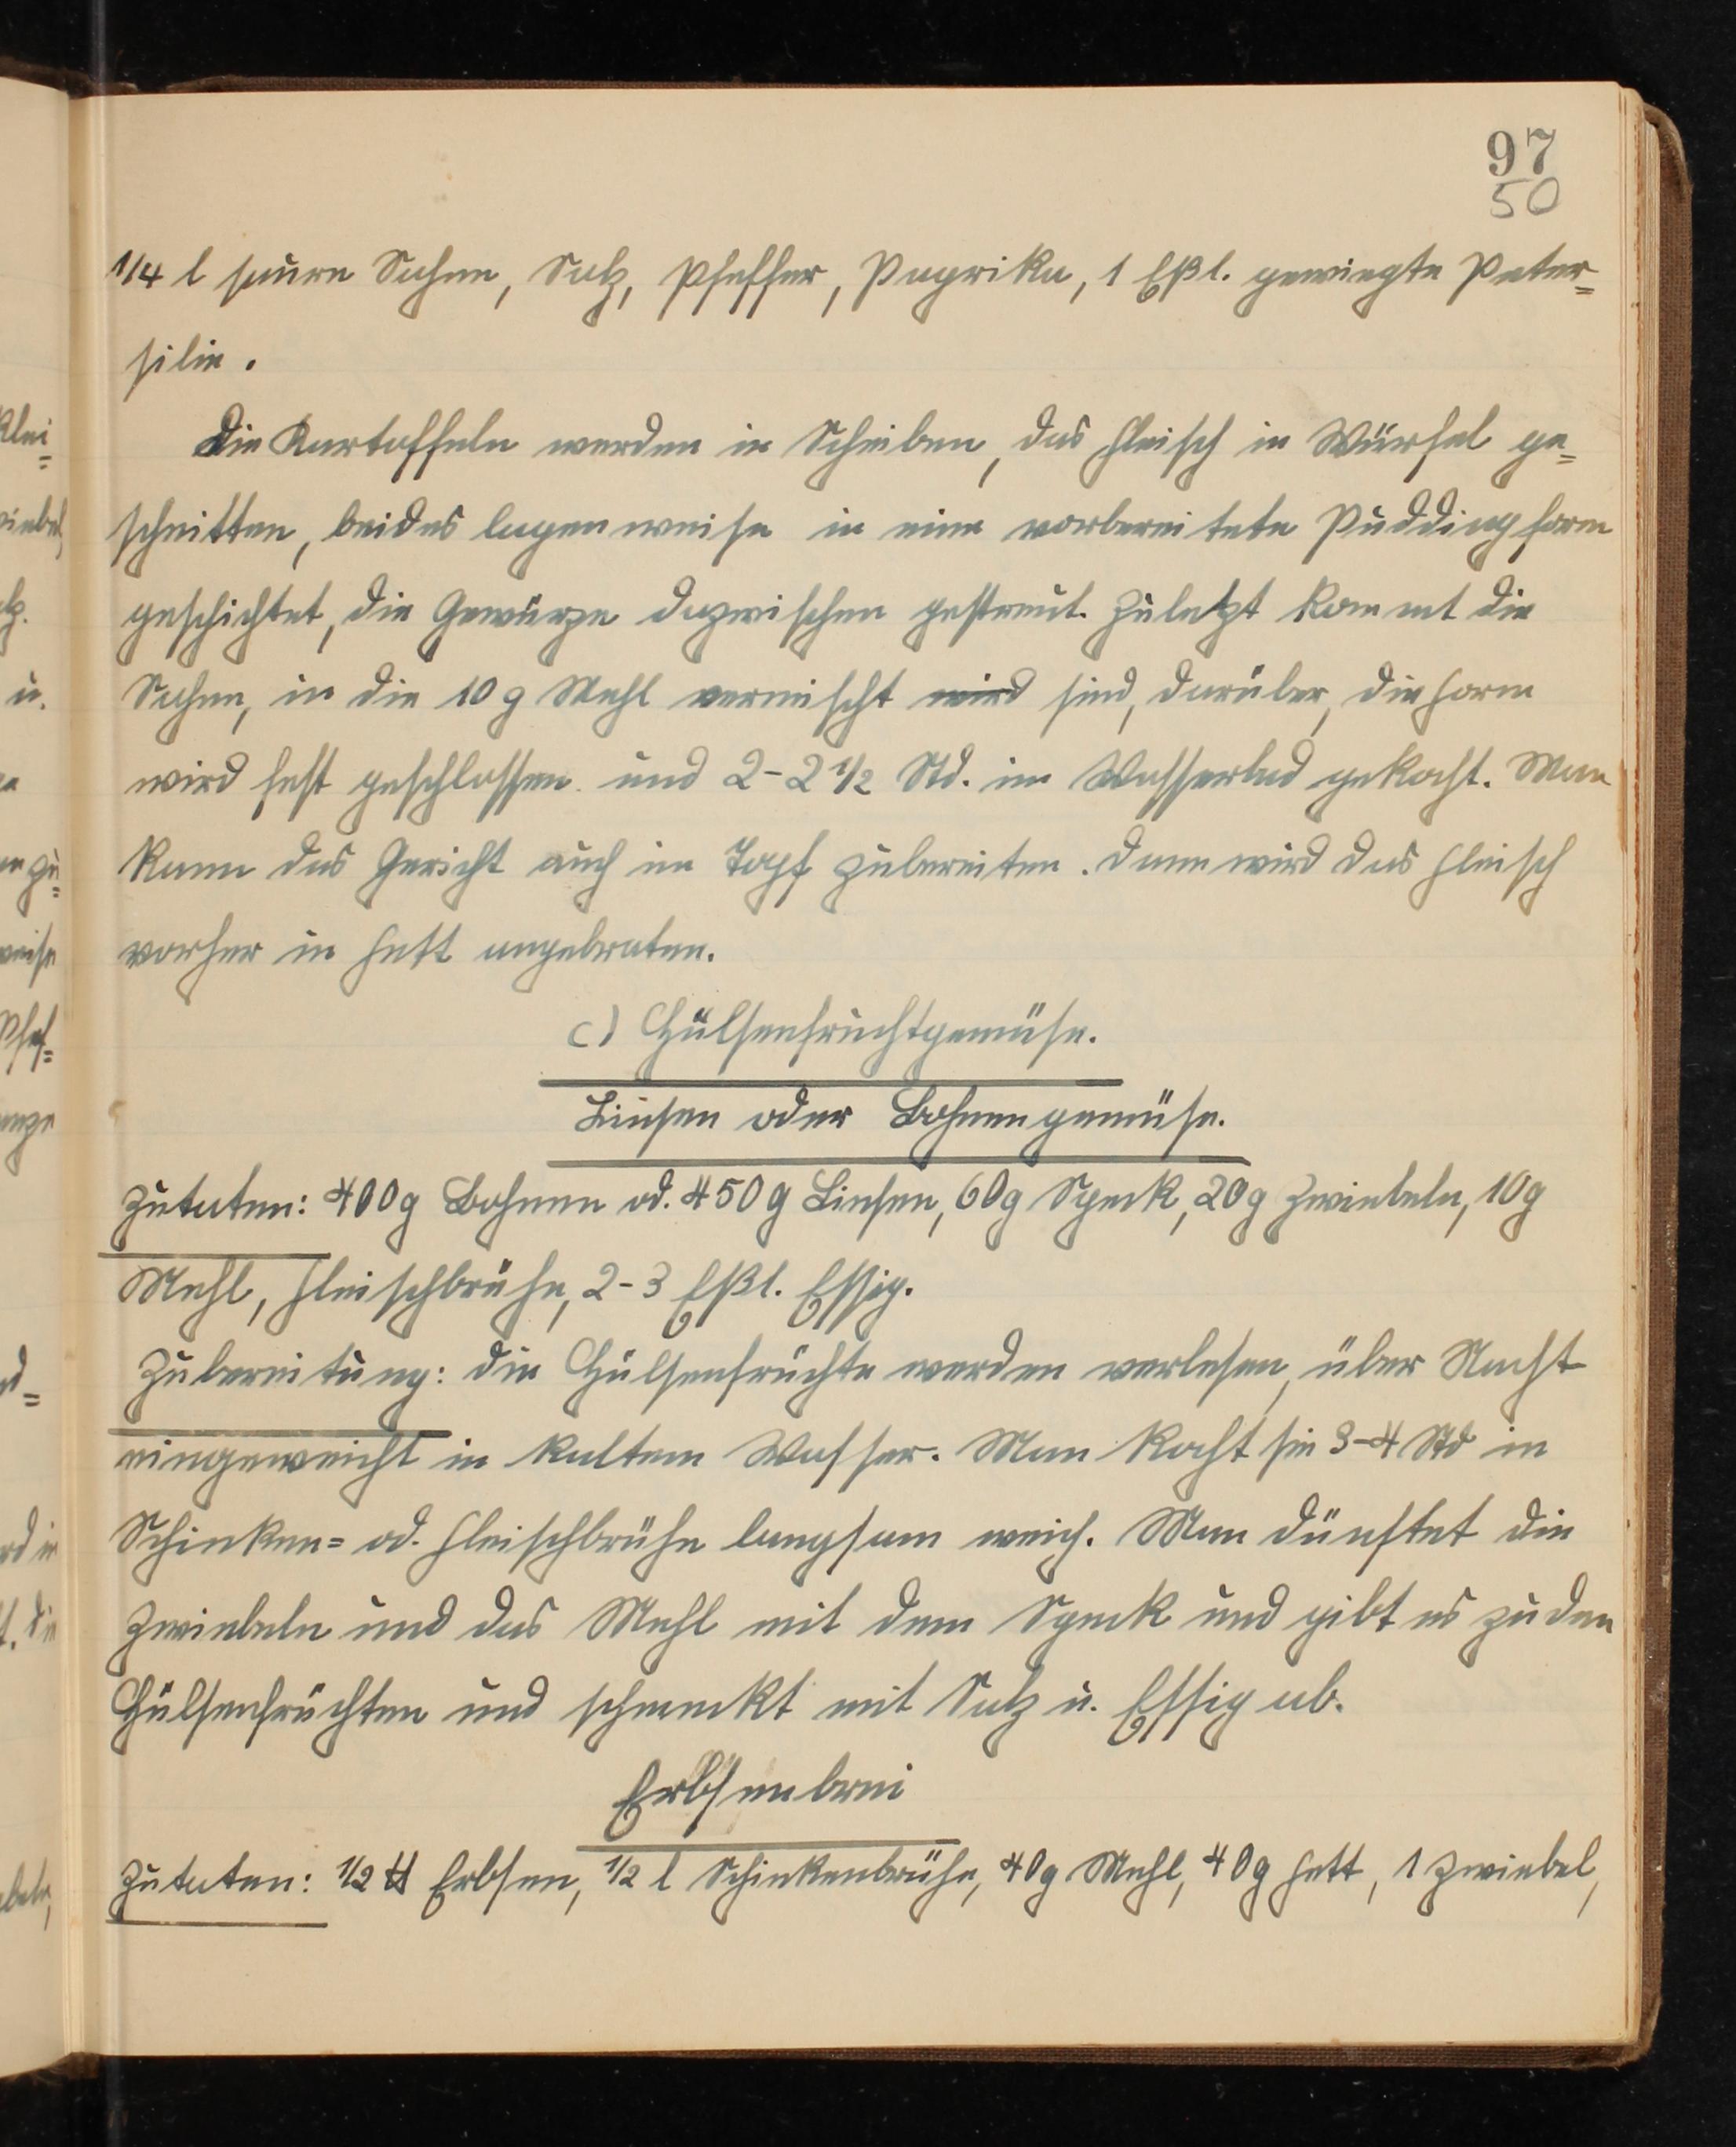 97
50
1/4 l saure Sahne, Salz, Pfeffer, Paprika, 1 Eßl. gewiegte Peter=
silie.
Die Kartoffeln werden in Scheiben, das Fleisch in Würfel ge=
schnitten, beides lagenweise in eine vorbereitete Puddingform
geschichtet, die Gewürze dazwischen gestreut. Zuletzt kommt die
Sahne, in die 10 g Mehl vermischt wird sind, darüber, die Form
wird fest geschlossen und 2-2 1/2 Std. im Wasserbad gekocht. Man
kann das Gericht auch im Topf zubereiten. Dann wird das Fleisch
vorher in Fett angebraten.
c) Hülsenfruchtgemüse.
Linsen oder Bohnengemüse.
Zutaten: 400g Bohnen od. 450g Linsen, 60g Speck, 20g Zwiebeln, 10g
Mehl, Fleischbrühe, 2-3 Eßl. Essig.
Zubereitung: Die Hülsenfrüchte werden verlesen, über Nacht
eingeweicht in kaltem Wasser. Man kocht sie 3-4 Std in
Schinken= od. Fleischbrühe langsam weich. Man dünstet die
Zwiebeln und das Mehl mit dem Speck und gibt es zu den
Hülsenfrüchten und schmeckt mit Salz u. Essig ab.
Erbsenbrei
Zutaten: 1/2 ℔ Erbsen, 1/2 l Schinkenbrühe, 40g Mehl, 40g Fett, 1 Zwiebel,